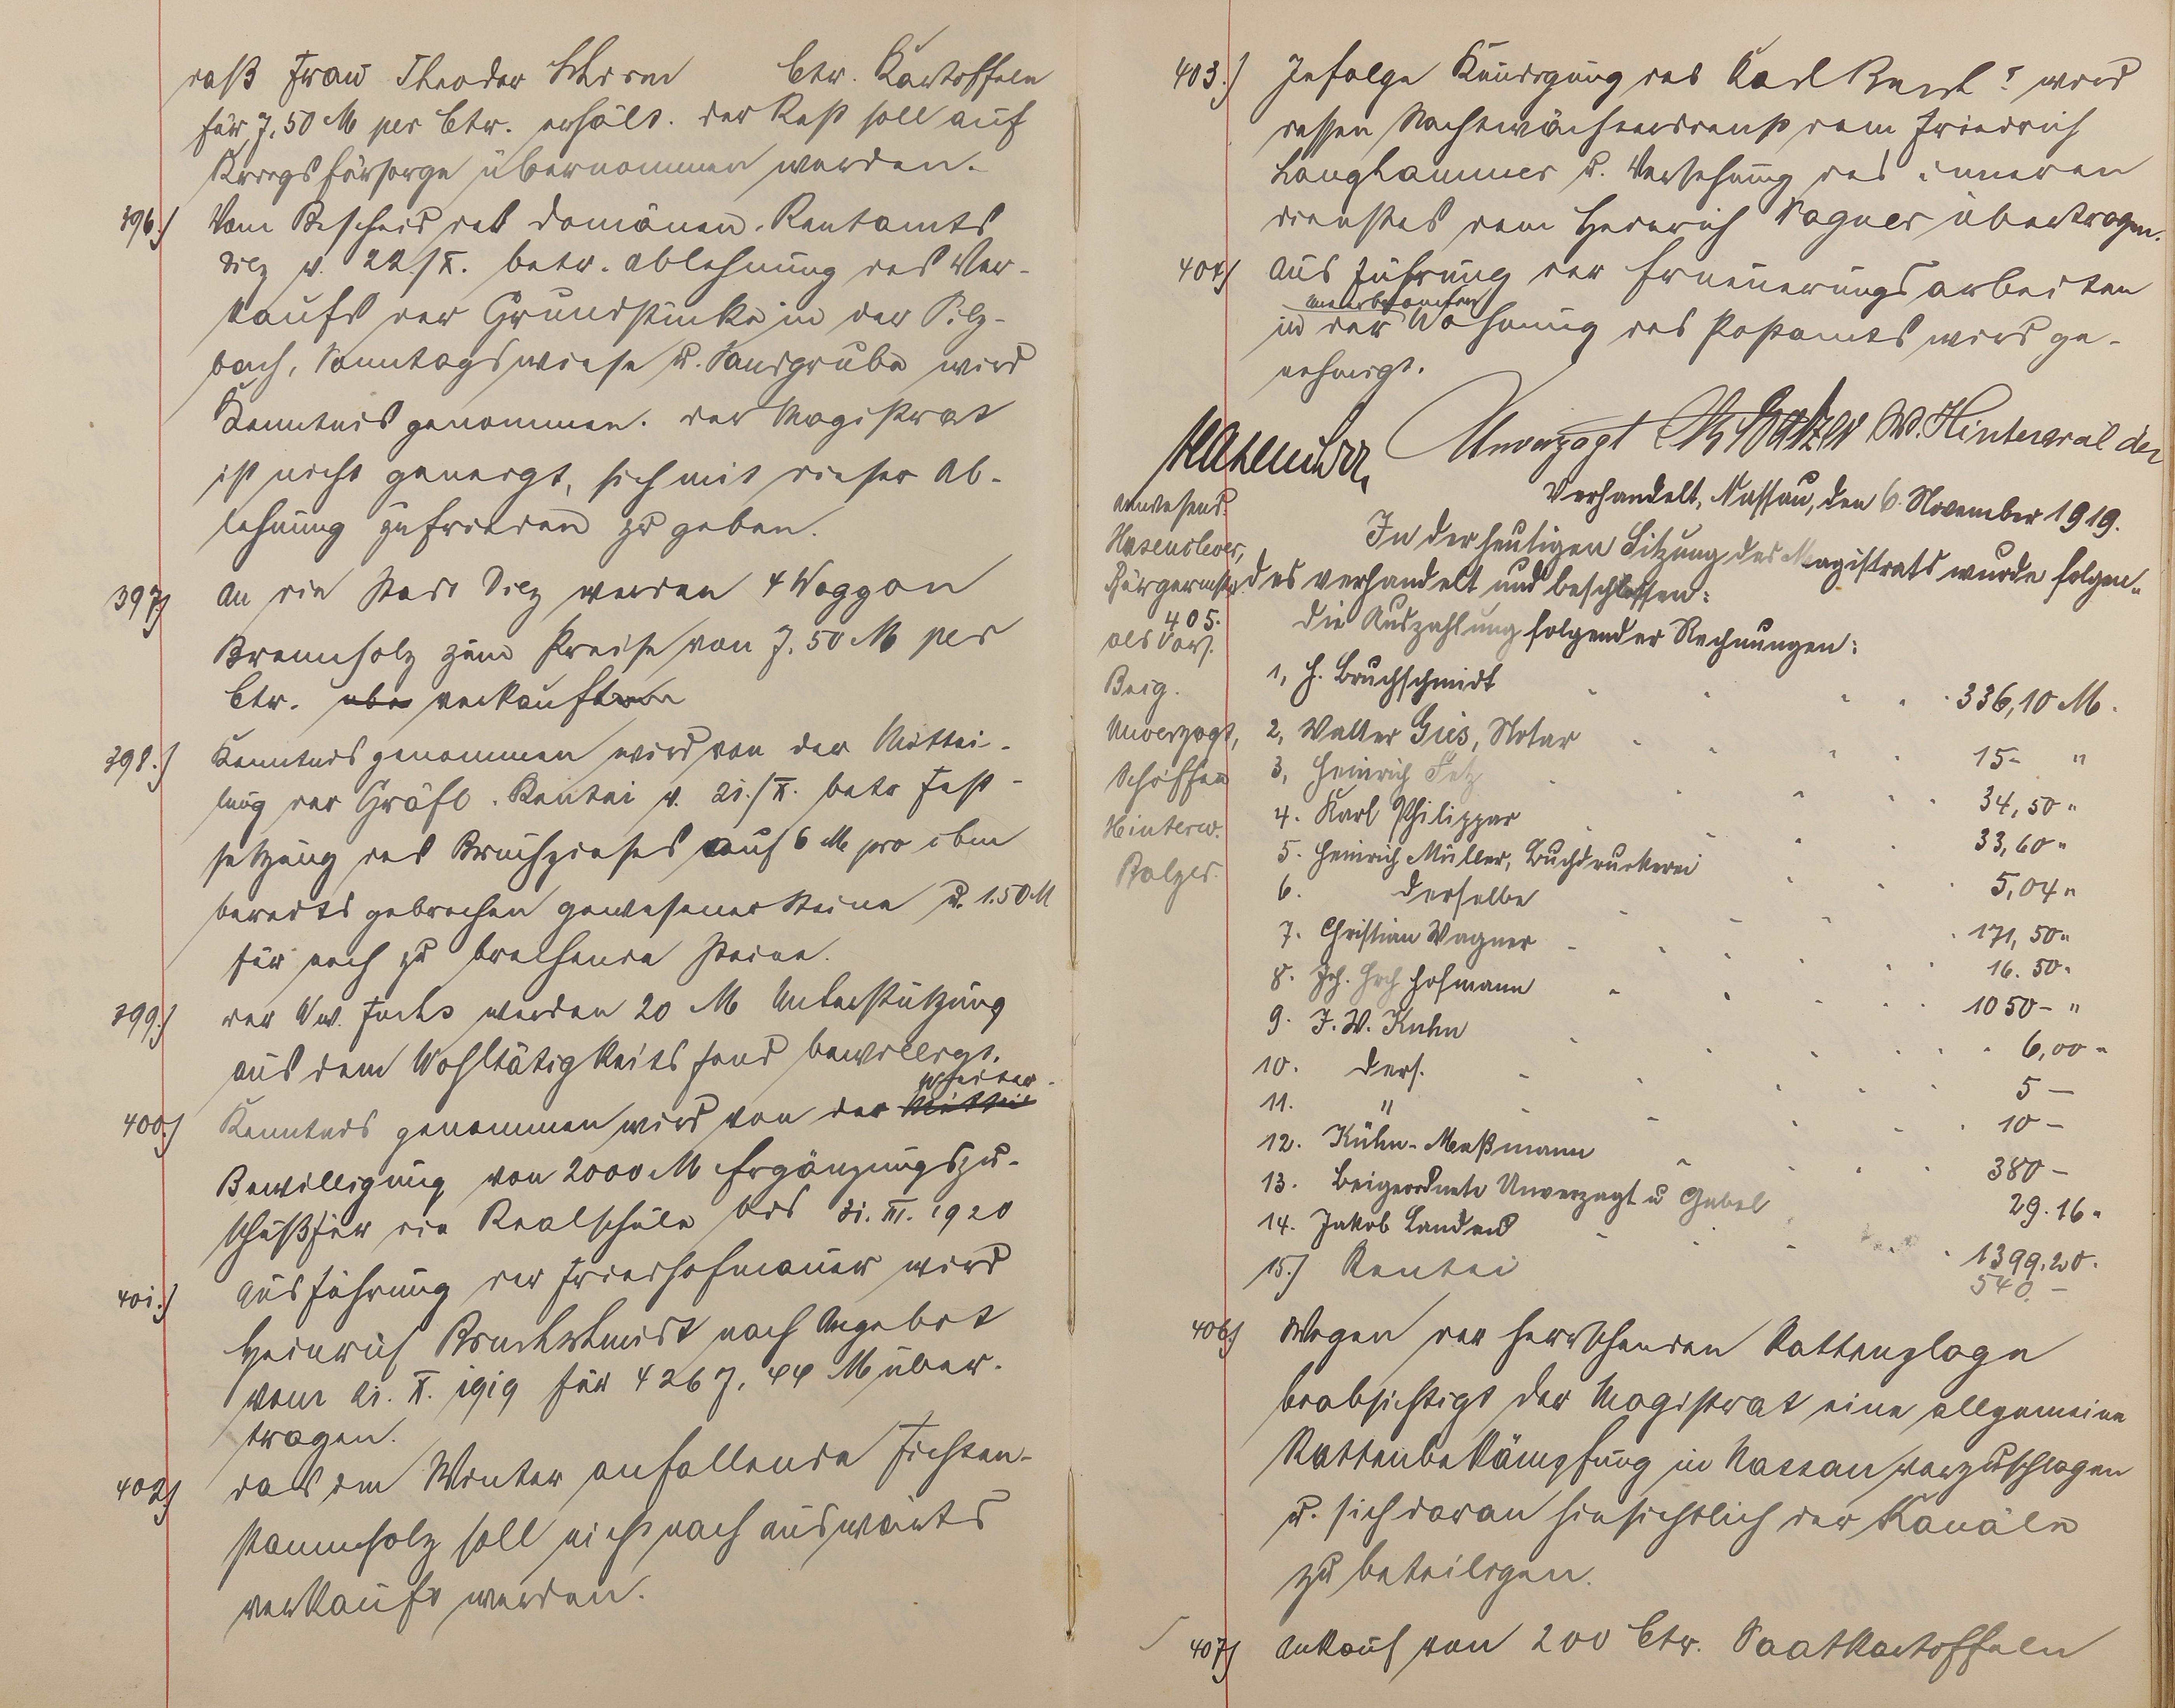 daß Frau Theodor Schroen Ctr. Kartoffeln
für 7,50 M per Ctr. erhält. der Rest soll auf
Kriegsfürsorge übernommen werden.
396.) Vom Bescheid des Domänen-Rentamts
Diez v. 22./X. betr. Ablehnung des Ver-
kaufs der Grundstücke in der Pilz-
bach, Sonntagswiese u. Sandgrube wird
Kenntnis genommen. der Magistrat
ist nicht geneigt, sich mit dieser Ab-
lehnung zufrieden zu geben.
397.) An die Stadt Diez werden 4 Waggon
Brennholz zum Preise von 7.50 M per
Ctr. verkauft
398.) Kenntnis genommen wird von der Mittei-
lung der Gräfl. Rentei v. 21./X. betr Fest-
setzung des Bruchzinses auf 6 M pro cbm
bereits gebrochen gewesener Steine u. 1.50 M
für noch zu brechende Steine.
399.) der Ww. Fuchs werden 20 M Unterstützung
aus dem Wohltätigkeitsfond bewilligt.
weiteren
400.) Kenntnis genommen wird von der Mittei
Bewilligung von 2000 M Ergänzungszu-
schuß für die Realschule bis 31. III. 1920
401.) Ausführung der Friedhofmauer wird
Heinrich Bruchschmidt nach Angebot
vom 21. X. 1919 für 4267,44 M über-
tragen.
402.) das im Winter anfallende Fichten-
stammholz soll nicht nach auswärts
verkauft werden.
403.) Infolge Kündigung des Karl wird
dessen Nachtwächterdienst dem Friedrich
Langhammer u. Versehung des inneren
dienstes dem Heinrich Wagner übertragen.
404.) Ausführung der Erneuerungsarbeiten
in der Wohnung des Postamts wird ge-
nehmigt.
Hasenclever Unverzagt Balzer W. Hinterwälder
Verhandelt, Nassau, den 6. November 1919.
anwesend:
Hasenclever,
Bürgermstr.
als Vors.
Beig.
Unverzagt,
Schöffen
Hinterw.
Balzer.
In der heutigen Sitzung des Magistrats wurde folgen-
des verhandelt und beschlossen:
405. Die Auszahlung folgender Rechnungen:
1, H. Bruchschmidt 336,10 M.
2, Walter Gies, Notar 15- "
3, Heinrich Fetz 34,50 "
4. Karl Philippar 33,60 "
5. Heinrich Müller, Buchdruckerei 5,04 "
6. Derselbe 171,50 "
7. Christian Wagner 16.50 "
8. Joh. Hrch Hofmann 1050- "
9. J. W. Kuhn 6,00 "
10. Ders. 5 —
11. " 10 —
12. Kühn-Maßmann 380 —
13. Beigeordnete Unverzagt u Gabel 29.16 "
14. Jakob Landau 1399.20.
15.) Rentei 540. —
406.) Wegen der herrschenden Rattenplage
beabsichtigt der Magistrat eine allgemeine
Rattenbekämpfung in Nassau vorzuschlagen
u. sich daran hinsichtlich der Kanäle
zu beteiligen.
407.) Ankauf von 200 Ctr. Saatkartoffeln